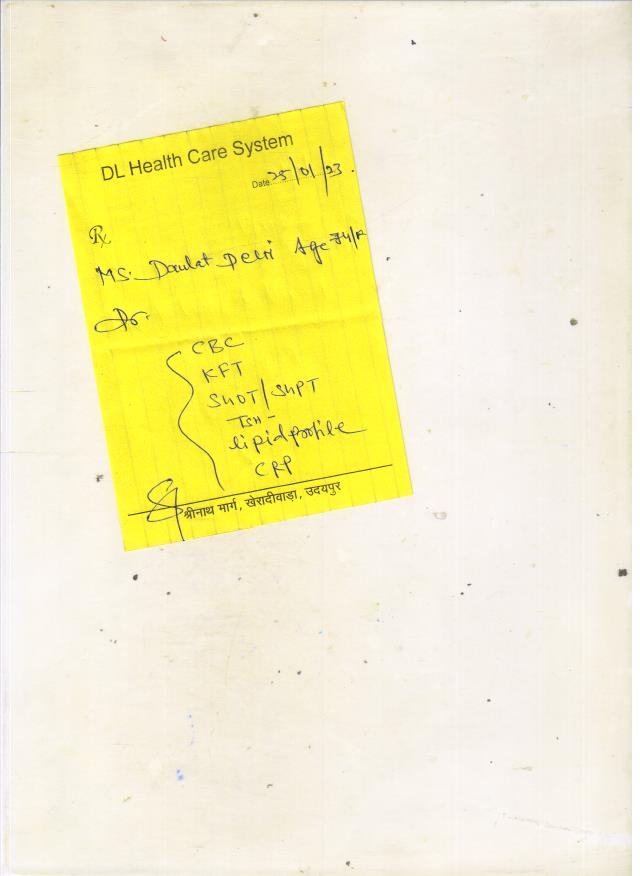 DL Health Care System
Date 25/01/23.
Rx
MS. Daulat Devi Age 74/F
Dr.
CBC
KFT
SGOT/SGPT
TSH -
lipid profile
CRP
श्रीनाथ मार्ग, खेरादीवाड़ा, उदयपुर